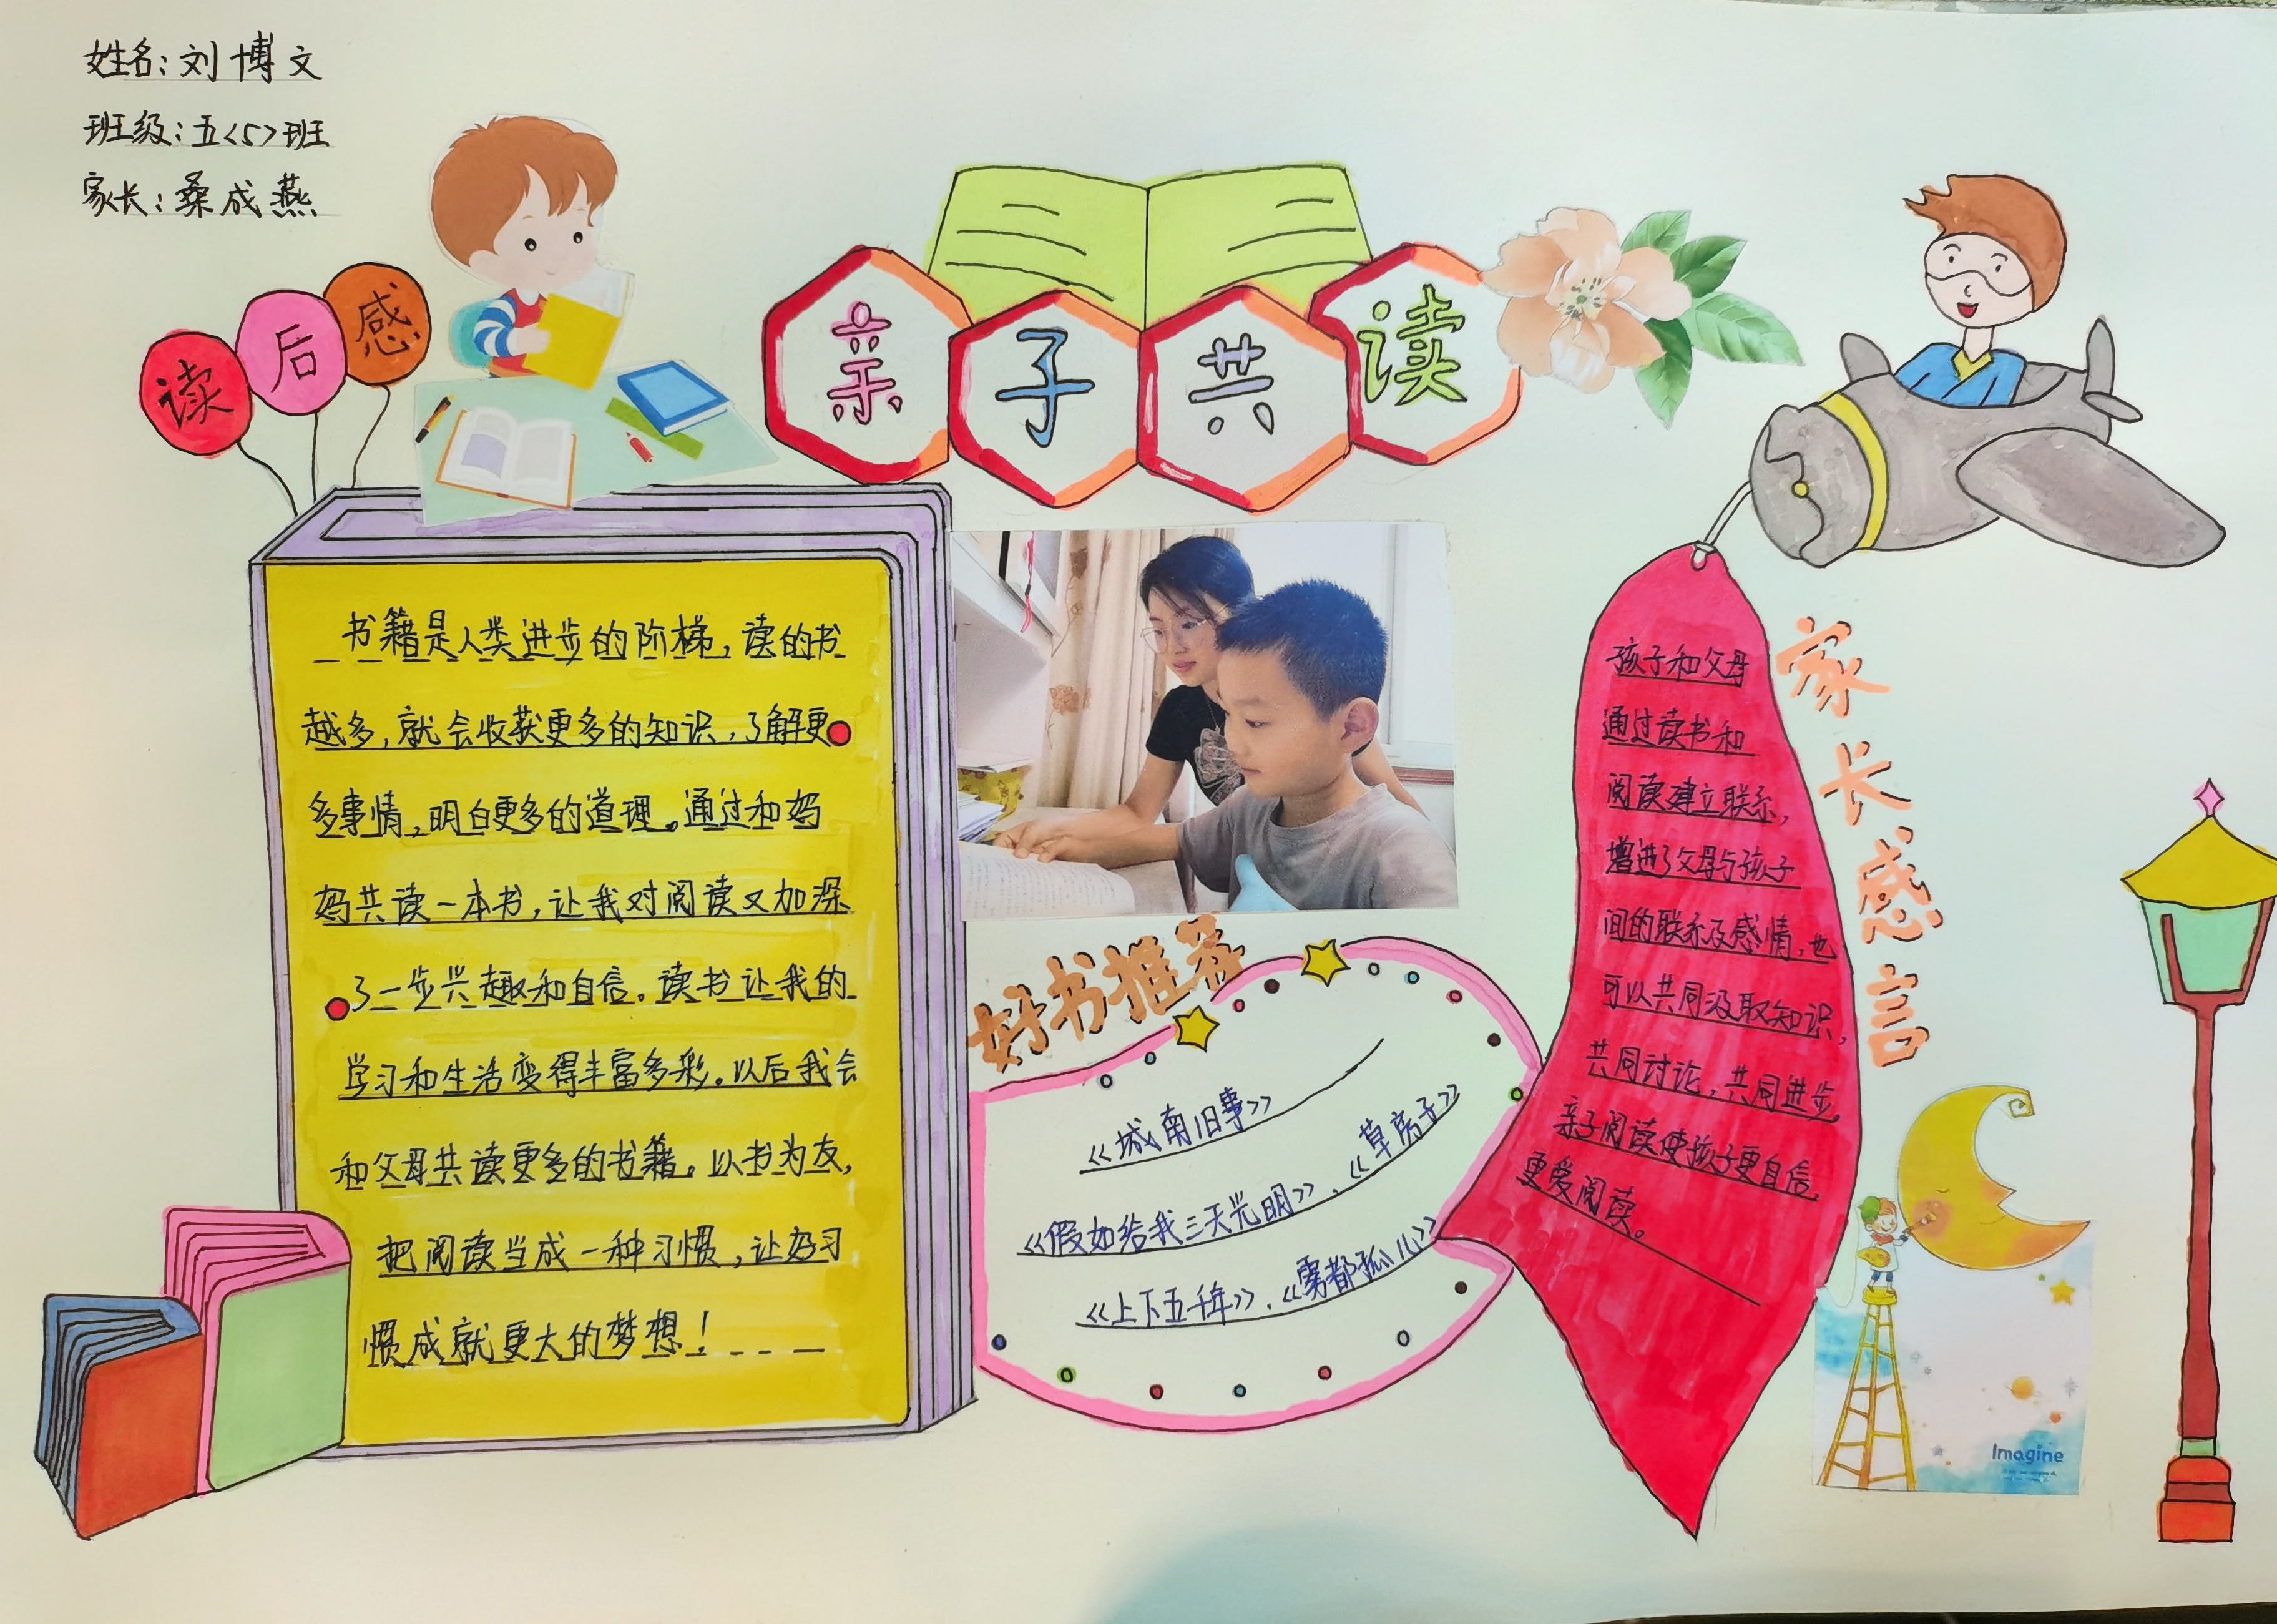 姓名:刘博文
班级:五<5>班
家长:桑成燕
读后感
亲子共读
书籍是人类进步的阶梯,读的书
越多,就会收获更多的知识,了解更
多事情,明白更多的道理。通过和妈
妈共读一本书,让我对阅读又加深
了一步兴趣和自信。读书让我的
学习和生活变得丰富多彩。以后我会
和父母共读更多的书籍。以书为友,
把阅读当成一种习惯,让好习
惯成就更大的梦想!
好书推荐
《城南旧事》
《假如给我三天光明》、《草房子》
《上下五千年》、《雾都孤儿》
家长感言
孩子和父母
通过读书和
阅读建立联系,
增进了父母与孩子
间的联系及感情,也
可以共同汲取知识,
共同讨论,共同进步。
亲子阅读使孩子更自信,
更爱阅读。
Imagine